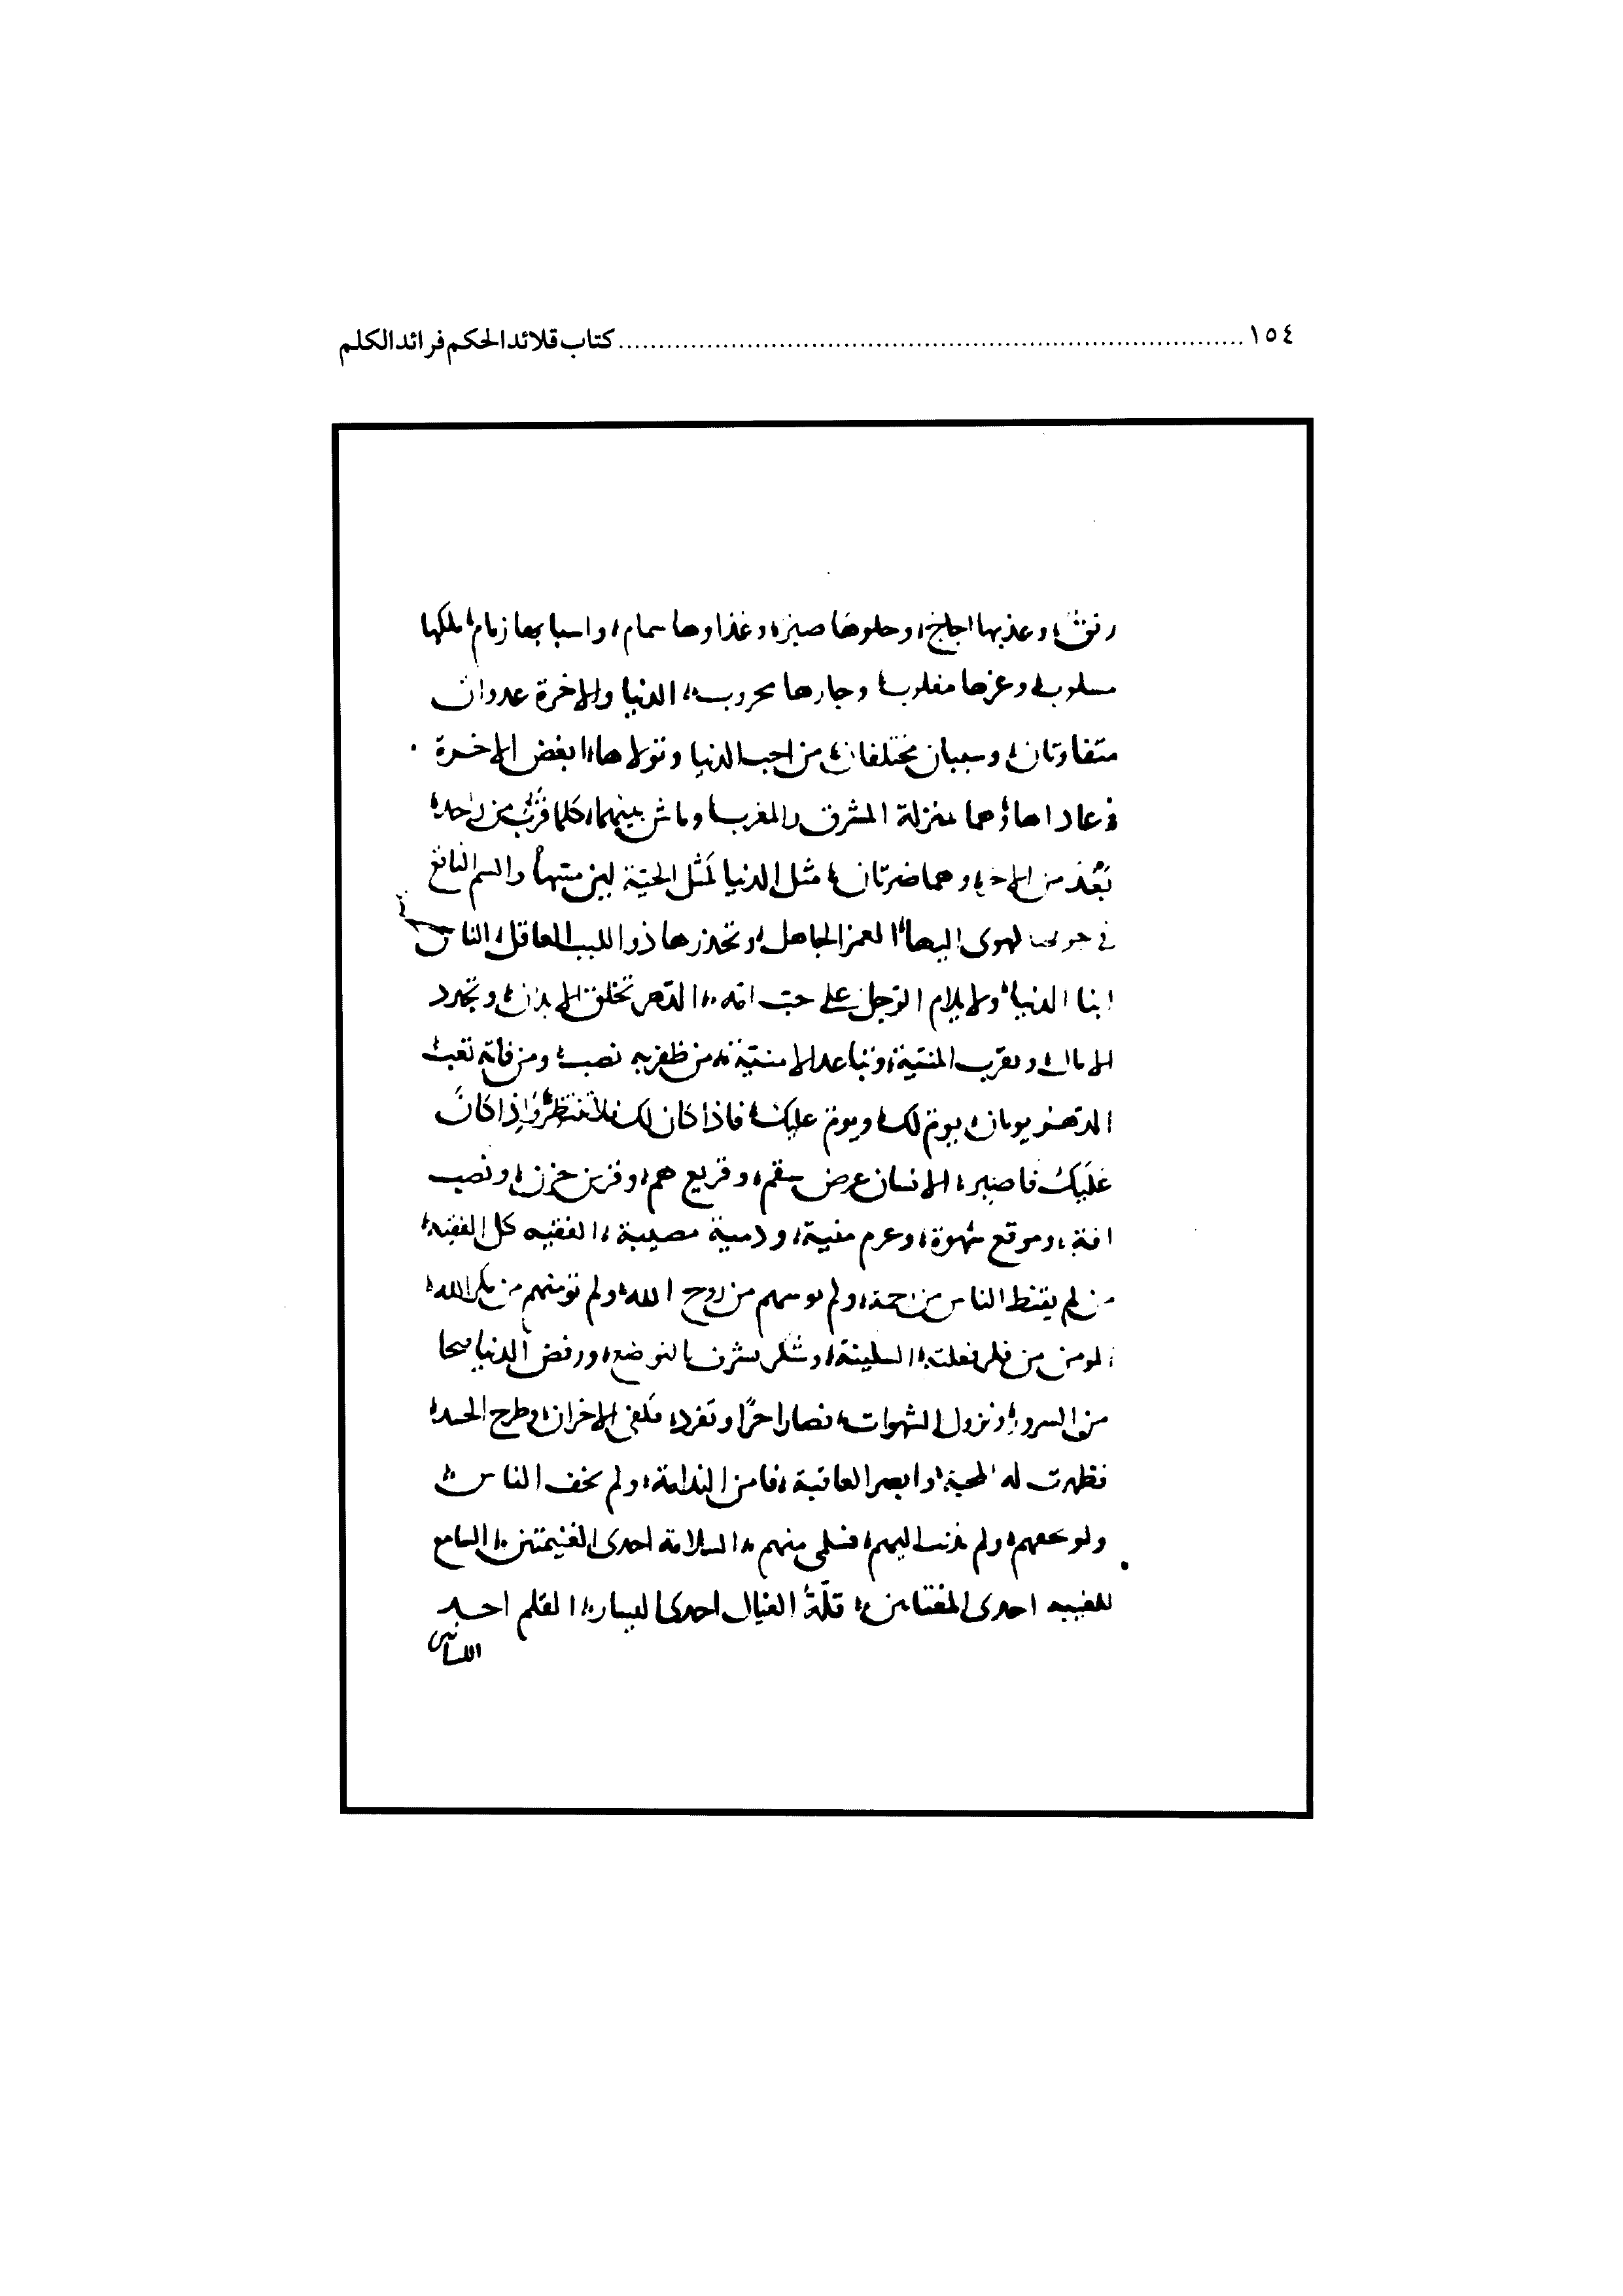 ١٥٤ ........ كتاب قلائد الحكم فرائد الكلم
رنق وعذبها اجاج وحلوها صبر وغذاوها سمام واسبابها زمام ملكها
مسلوب وعزها مغلوب وجارها محروب الدنيا والاخرة عدوان
متفاوتان وسبيان مختلفان من احب الدنيا وتولاها ابغض الاخرة
وعاداها وهما بمنزلة المشرق والمغرب وماش بينهما كلما قرب من واحد
بعد من الاخر وهما ضرتان مثل الدنيا كمثل الحية لين متنها والسم الناقع
في جوفها يهوى اليها الغمر الجاهل وتحذرها ذو اللب العاقل الناس
ابنا الدنيا ولا يلام الرجل على حب امه الدهر تخلق الابدان وتجدد
الامال وتقرب المنية وتباعد الامنية من ظفر به نصب ومن فاته تعب
الدهر يومان يوم لك ويوم عليك فاذا كان لك فلا تبطر واذا كان
عليك فاصبر الانسان عرض سقم وقريع هم وقرين حزن ونصب
افة وموقع شهوة وعرم منية ودمية مصيبة الفقيه كل الفقيه
من لم يقنط الناس من رحمة ولم يوسهم من روح الله ولم تومنهم من مكر الله
المومن من فكر فعلت السكينة وشكر بشرف بالتوضع ورفض الدنيا
من السرور ونزول الشهوات فصار احرا وتفرد فكفى الاحزان وطرح الحسد
فظهرت له المحبة وابصر العاقبة فامن الندامة ولم يخف الناس
ولم ولم يذنب اليهم فسلم منهم السلامة احدى الغنيمتين السامع
للغيبة احدى المغتابين قلة العيال احدى ليسار القلم احد
اللسانين